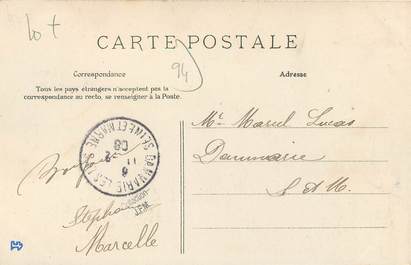 lot
94
CARTE POSTALE
Correspondance
Adresse
Tous les pays étrangers n'acceptent pas la
correspondance au recto, se renseigner à la Poste.
Mr Marcel Lucas
Dammarie
S et M.
DAMMARIE LES LYS
SEINE ET MARNE
6
11 -2
08
Stephane
Marcelle